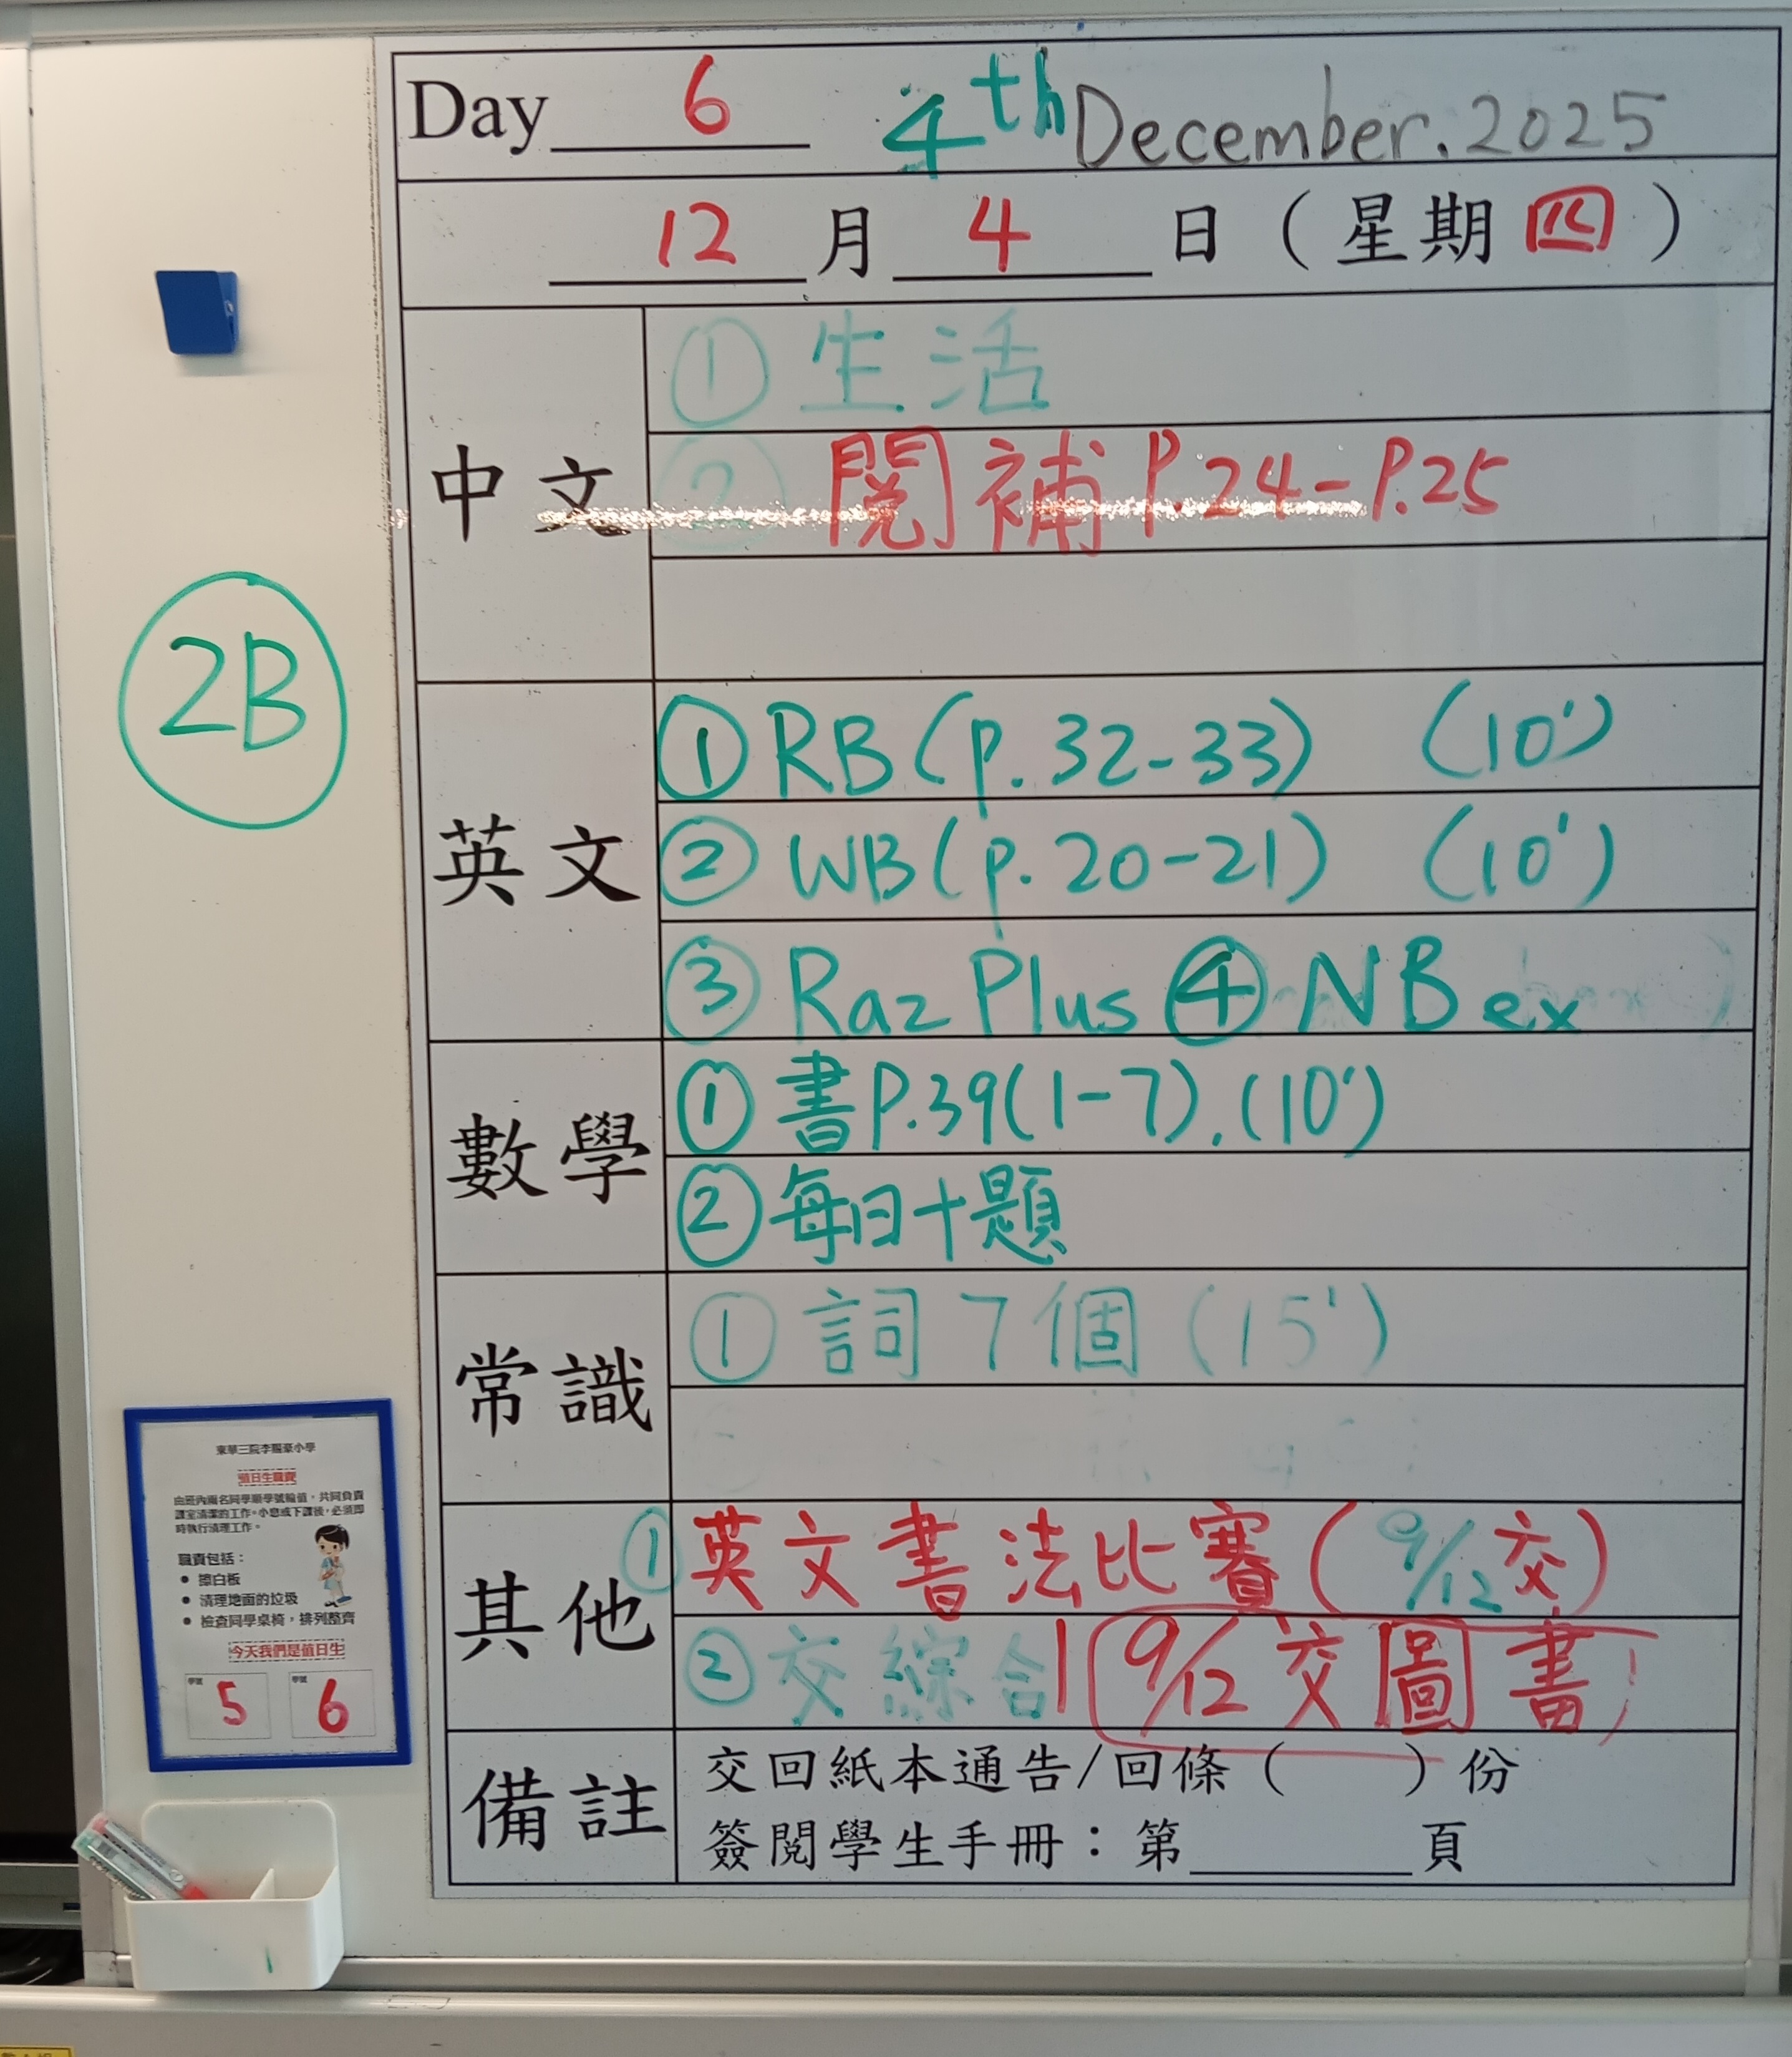 Day 6 4th December. 2025
12 月 4 日 ( 星期 四 )
中文
① 生活
② 閱補 P.24-P.25
2B
英文
① RB (p. 32-33) (10')
② WB (p. 20-21) (10')
③ Raz Plus ④ NB ex
數學
① 書 P.39 (1-7). (10')
② 每日十題
常識
① 詞 7 個 (15')
其他
① 英文書法比賽 ( 9/12 交 )
② 交綜合 | 9/12 交圖書
備註
交回紙本通告/回條 ( ) 份
簽閱學生手冊：第 頁
東華三院李賜豪小學
值日生職責
由班內兩名同學順學號輪值，共同負責
課室清潔的工作。小息或下課後，必須即
時執行清理工作。
職責包括：
• 擦白板
• 清理地面的垃圾
• 檢查同學桌椅，排列整齊
今天我們是值日生
學號 5 學號 6